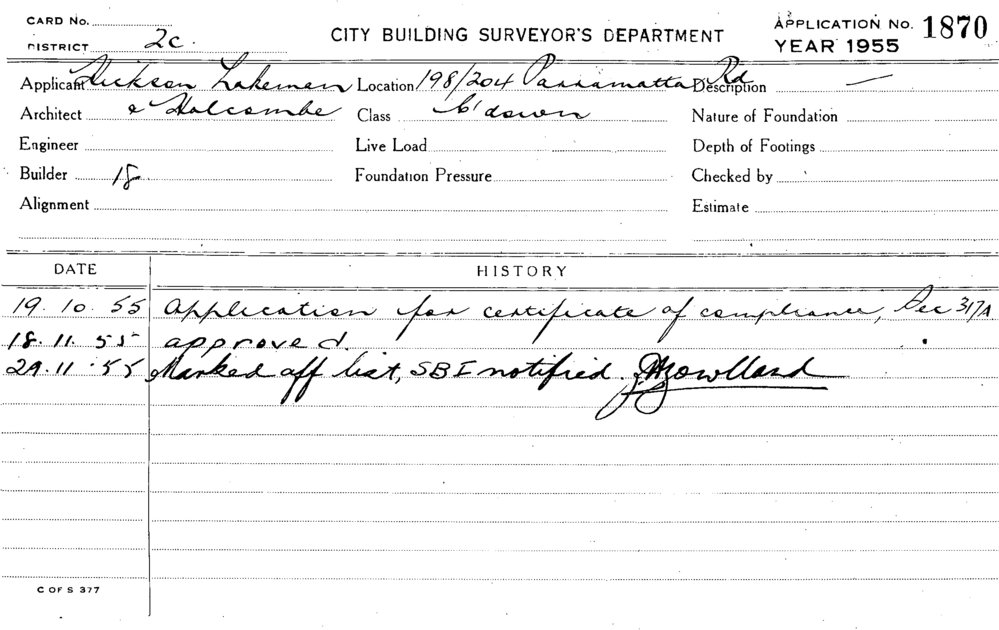 CARD No.
DISTRICT 2c.
CITY BUILDING SURVEYOR'S DEPARTMENT
APPLICATION No. 1870
YEAR 1955
Applicant Hickson Lakeman Location 198/204 Parramatta Rd Description —
Architect & Holcombe Class C'down Nature of Foundation
Engineer Live Load Depth of Footings
Builder 18 Foundation Pressure Checked by
Alignment Estimate
DATE HISTORY
19. 10. 55 Application for certificate of compliance, Sec 317A
18. 11. 55 approved.
29. 11. 55 Marked off list, SBI notified.
C OF S 377